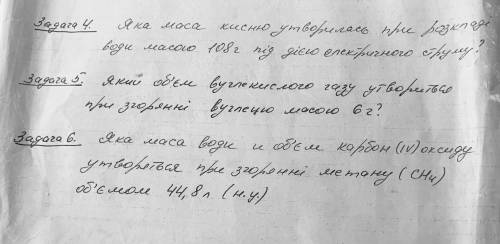 Задача 4. Яка маса кисню утворилась при розкладі
води масою 108 г під дією електричного струму?
Задача 5. Який об'єм вуглекислого газу утвориться
при згорянні вуглецю масою 6 г?
Задача 6. Яка маса води и об'єм карбон (IV) оксиду
утвориться при згорянні метану (CH4)
об'ємом 44,8 л. (н.у)